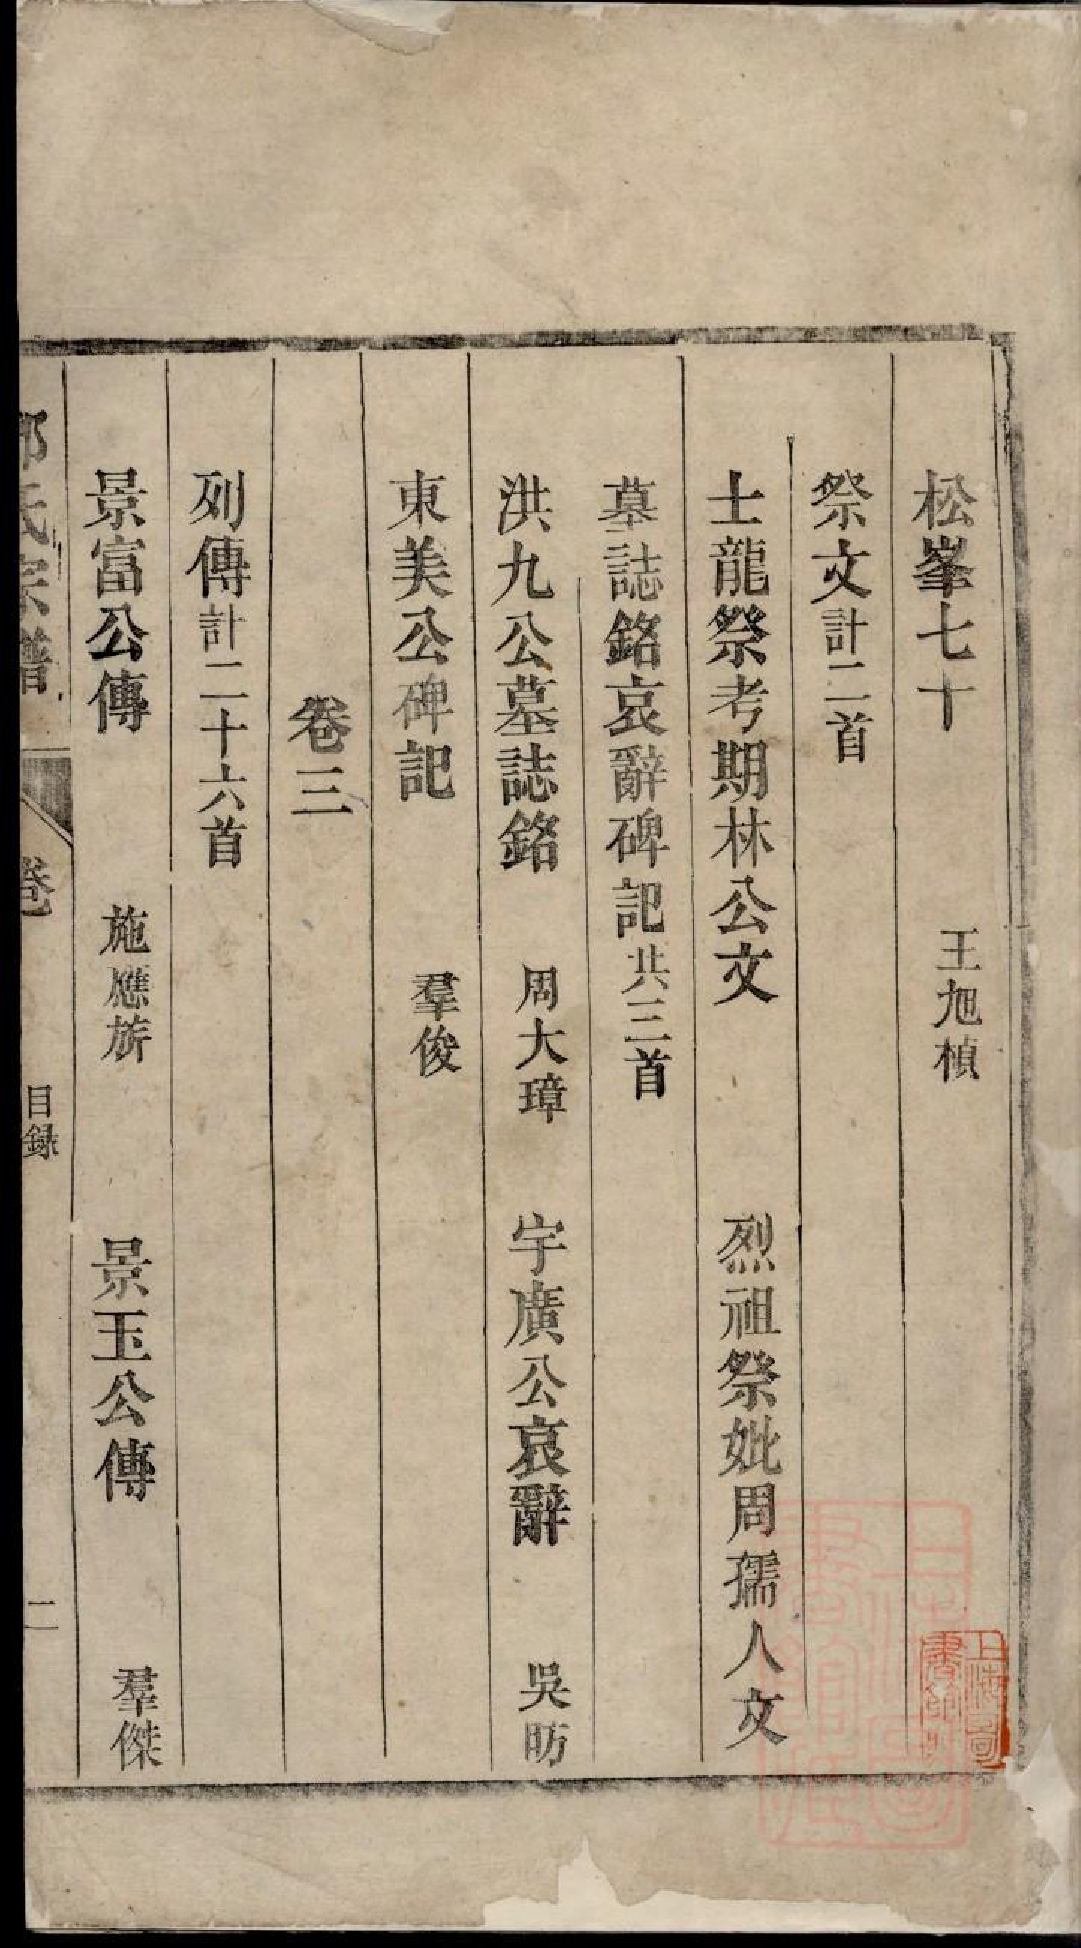 松峯七十　王旭楨
祭文計二首
士龍祭考期林公文　烈祖祭妣周孺人文
墓誌銘哀辭碑記共三首
洪九公墓誌銘　周大璋　宇廣公哀辭　吳昉
東美公碑記　羣俊
卷三
列傳計二十六首
景富公傳　施應旂　景玉公傳　羣傑
氏宗譜　卷　目錄　二
上海圖書館